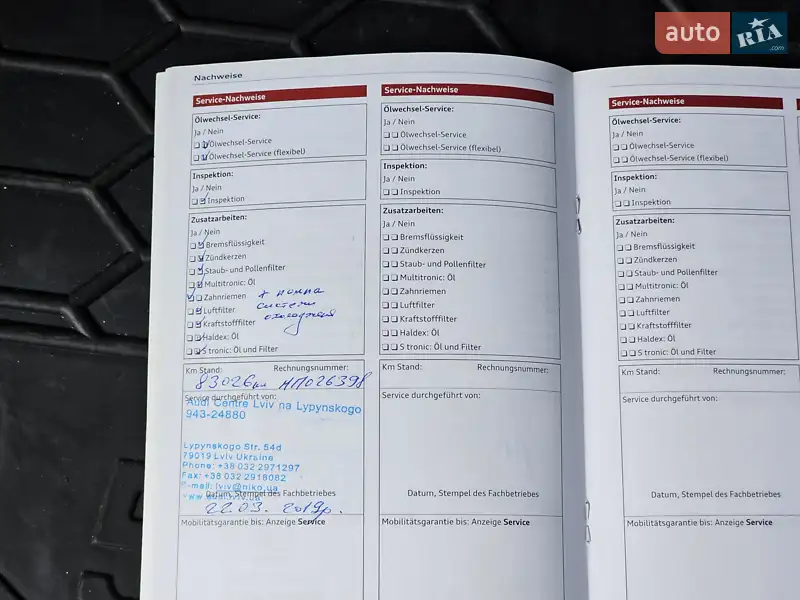 auto RIA .com
Nachweise
Service-Nachweise
Ölwechsel-Service:
Ja / Nein
Ölwechsel-Service
Ölwechsel-Service (flexibel)
Inspektion:
Ja / Nein
Inspektion
Zusatzarbeiten:
Ja / Nein
Bremsflüssigkeit
Zündkerzen
Staub- und Pollenfilter
Multitronic: Öl
Zahnriemen
Luftfilter
Kraftstofffilter
Haldex: Öl
S tronic: Öl und Filter
+ помпа
системи
охолодження
Km Stand: Rechnungsnummer:
83026км НП026398
Service durchgeführt von:
Audi Centre Lviv na Lypynskogo
943-24880
Lypynskogo Str. 54d
79019 Lviv Ukraine
Phone: +38 032 2971297
Fax: +38 032 2918082
e-mail: lviv@niko.ua
Datum, Stempel des Fachbetriebes
22.03. 2019р.
Mobilitätsgarantie bis: Anzeige Service
Service-Nachweise
Ölwechsel-Service:
Ja / Nein
Ölwechsel-Service
Ölwechsel-Service (flexibel)
Inspektion:
Ja / Nein
Inspektion
Zusatzarbeiten:
Ja / Nein
Bremsflüssigkeit
Zündkerzen
Staub- und Pollenfilter
Multitronic: Öl
Zahnriemen
Luftfilter
Kraftstofffilter
Haldex: Öl
S tronic: Öl und Filter
Km Stand: Rechnungsnummer:
Service durchgeführt von:
Datum, Stempel des Fachbetriebes
Mobilitätsgarantie bis: Anzeige Service
Service-Nachweise
Ölwechsel-Service:
Ja / Nein
Ölwechsel-Service
Ölwechsel-Service (flexibel)
Inspektion:
Ja / Nein
Inspektion
Zusatzarbeiten:
Ja / Nein
Bremsflüssigkeit
Zündkerzen
Staub- und Pollenfilter
Multitronic: Öl
Zahnriemen
Luftfilter
Kraftstofffilter
Haldex: Öl
S tronic: Öl und Filter
Km Stand: Rechnungsnummer:
Service durchgeführt von:
Datum, Stempel des Fachbetriebes
Mobilitätsgarantie bis: Anzeige Service